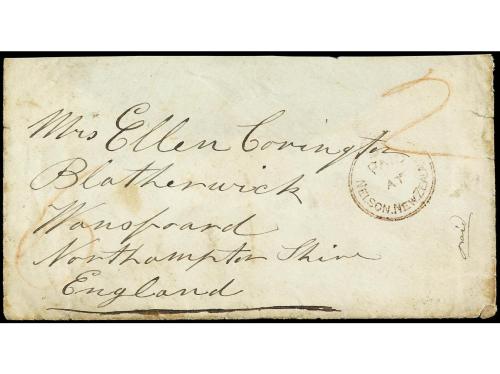 Mrs Ellen Covington
Blatherwick
Wansfoard
Northampton Shire
England
2
NELSON. NEW ZEAL
paid